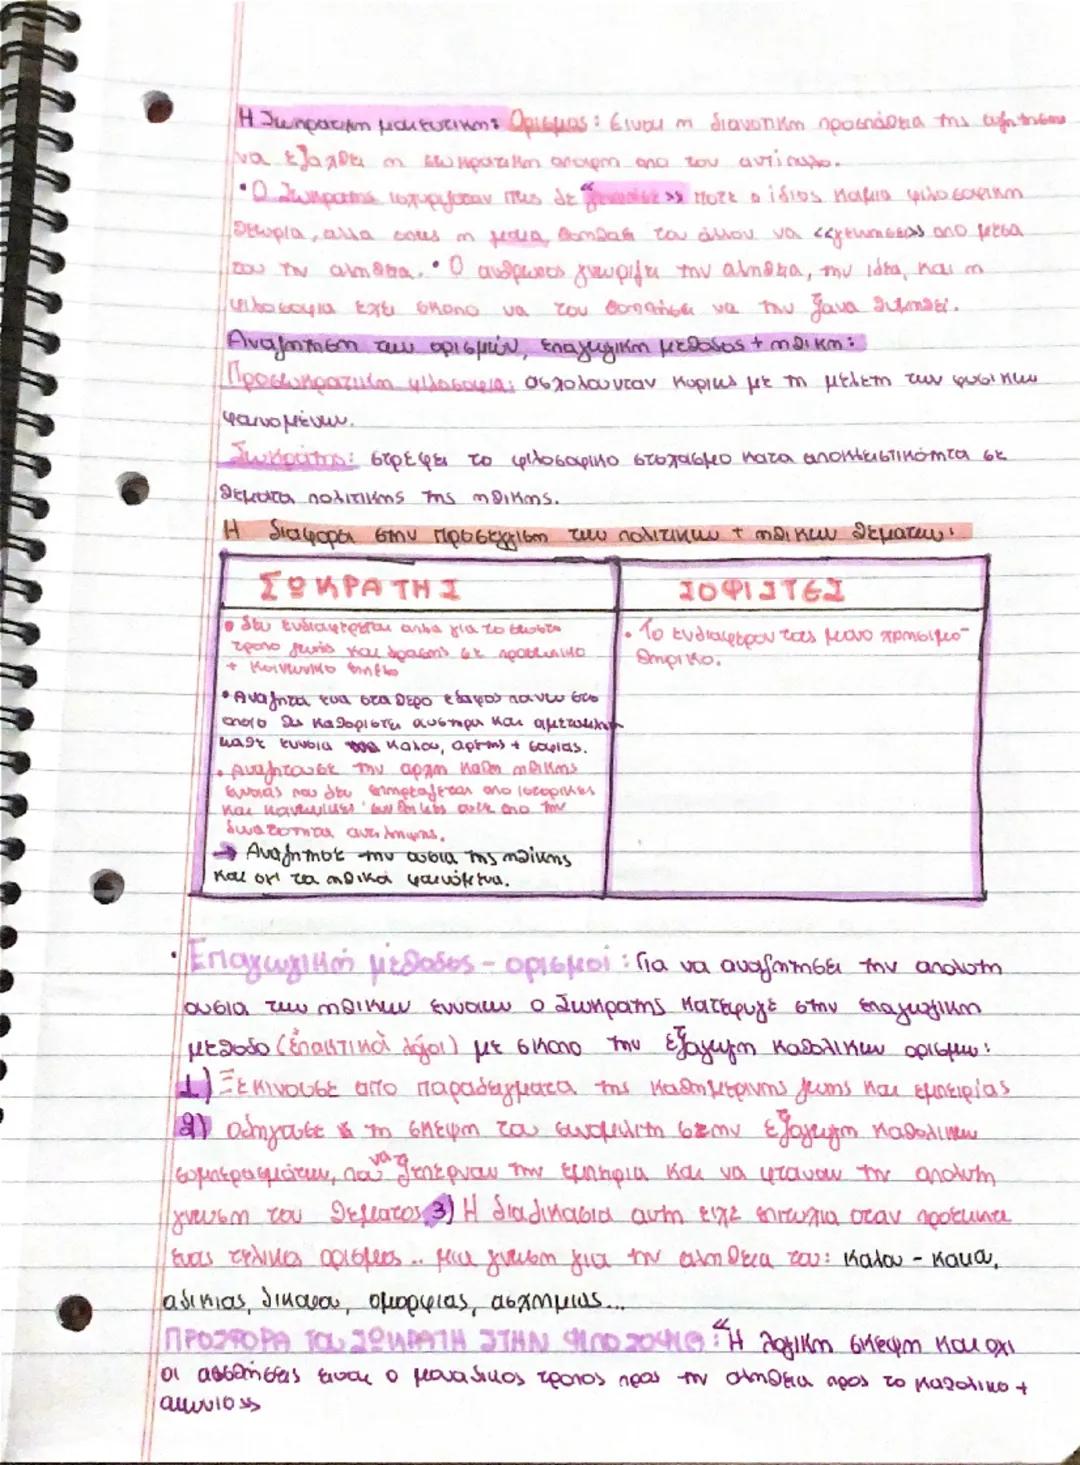 Η Σωκρατικη μαιευτικη: Ορισμος: Ειναι η διανοητικη προσπαθεια της συζητησεως
να εξαχθει η σωκρατικη απο τον αντιπαλο.
• Ο Σωκρατης ισχυριζοταν πως δε "γεννησε" ποτε ο ιδιος καμια φιλοσοφικη
θεωρια, αλλα οπως η μαια, βοηθαει τον άλλον να <<γεννησει>> απο μεσα
του την αληθεια. • Ο ανθρωπος γνωριζει την αληθεια, την ιδεα, και η
φιλοσοφια εχει σκοπο να τον βοηθησει να την ξανα θυμηθεί.
Αναζητηση των ορισμών, επαγωγικη μεθοδος + ηθικη:
Προσωκρατικη φιλοσοφια: ασχολουνταν κυριως με τη μελετη των φυσικων
φαινομένων.
Σωκράτης: στρέφει το φιλοσοφικο στοχασμο κατα αποκλειστικότητα σε
θεματα πολιτικης της ηθικης.
Η διαφορα στην προσεγγιση των πολιτικων + ηθικων θεματων:
ΣΩΚΡΑΤΗΣ
ΣΟΦΙΣΤΕΣ
• Δεν ενδιαφερεται απλα για το σωστο
τροπο ζωής και δρασης σε προσωπικο
+ κοινωνικο επιπεδο
• Αναζητα ενα σταθερο εδαφος πανω στο
οποιο θα καθοριστει αυστηρα και αμετακλητα
καθε εννοια καλου, αρετης + σοφιας.
• Αναζητουσε την αρχη καθε ηθικης
εννοιας που δεν επηρεαζεται απο ιστορικες
και κοινωνικες συνθηκες ουτε απο την
δυνατοτητα αντιληψης.
→ Αναζητησε την ουσια της ηθικης
και οχι τα ηθικά φαινόμενα.
• Το ενδιαφερον τους μονο χρησιμο-
θηρικο.
• Επαγωγική μέθοδος - ορισμοί: Για να αναζητησει την απολυτη
ουσια των ηθικων εννοιων ο Σωκρατης κατεφυγε στην επαγωγικη
μεθοδο (ἐπακτικοὶ λόγοι) με σκοπο την εξαγωγη καθολικων ορισμων:
1) Ξεκινουσε απο παραδειγματα της καθημερινης ζωης και εμπειρίας
2) οδηγουσε τη σκεψη του συνομιλητη στην εξαγωγη καθολικων
συμπερασματων, που να ξεπερναν την εμπειρια και να φταναν την απολυτη
γνωση του θεματος 3) Η διαδικασια αυτη ειχε επιτυχια οταν προεκυπτε
ενας τελικος ορισμος .. μια γνωση για την αληθεια του: καλου - κακου,
αδικιας, δικαιου, ομορφιας, ασχημιας...
ΠΡΟΣΦΟΡΑ του ΣΩΚΡΑΤΗ ΣΤΗΝ ΦΙΛΟΣΟΦΙΑ: "Η λογικη σκεψη και οχι
οι αισθησεις ειναι ο μοναδικος τροπος προς την αληθεια προς το καθολικο +
αιωνιο>>